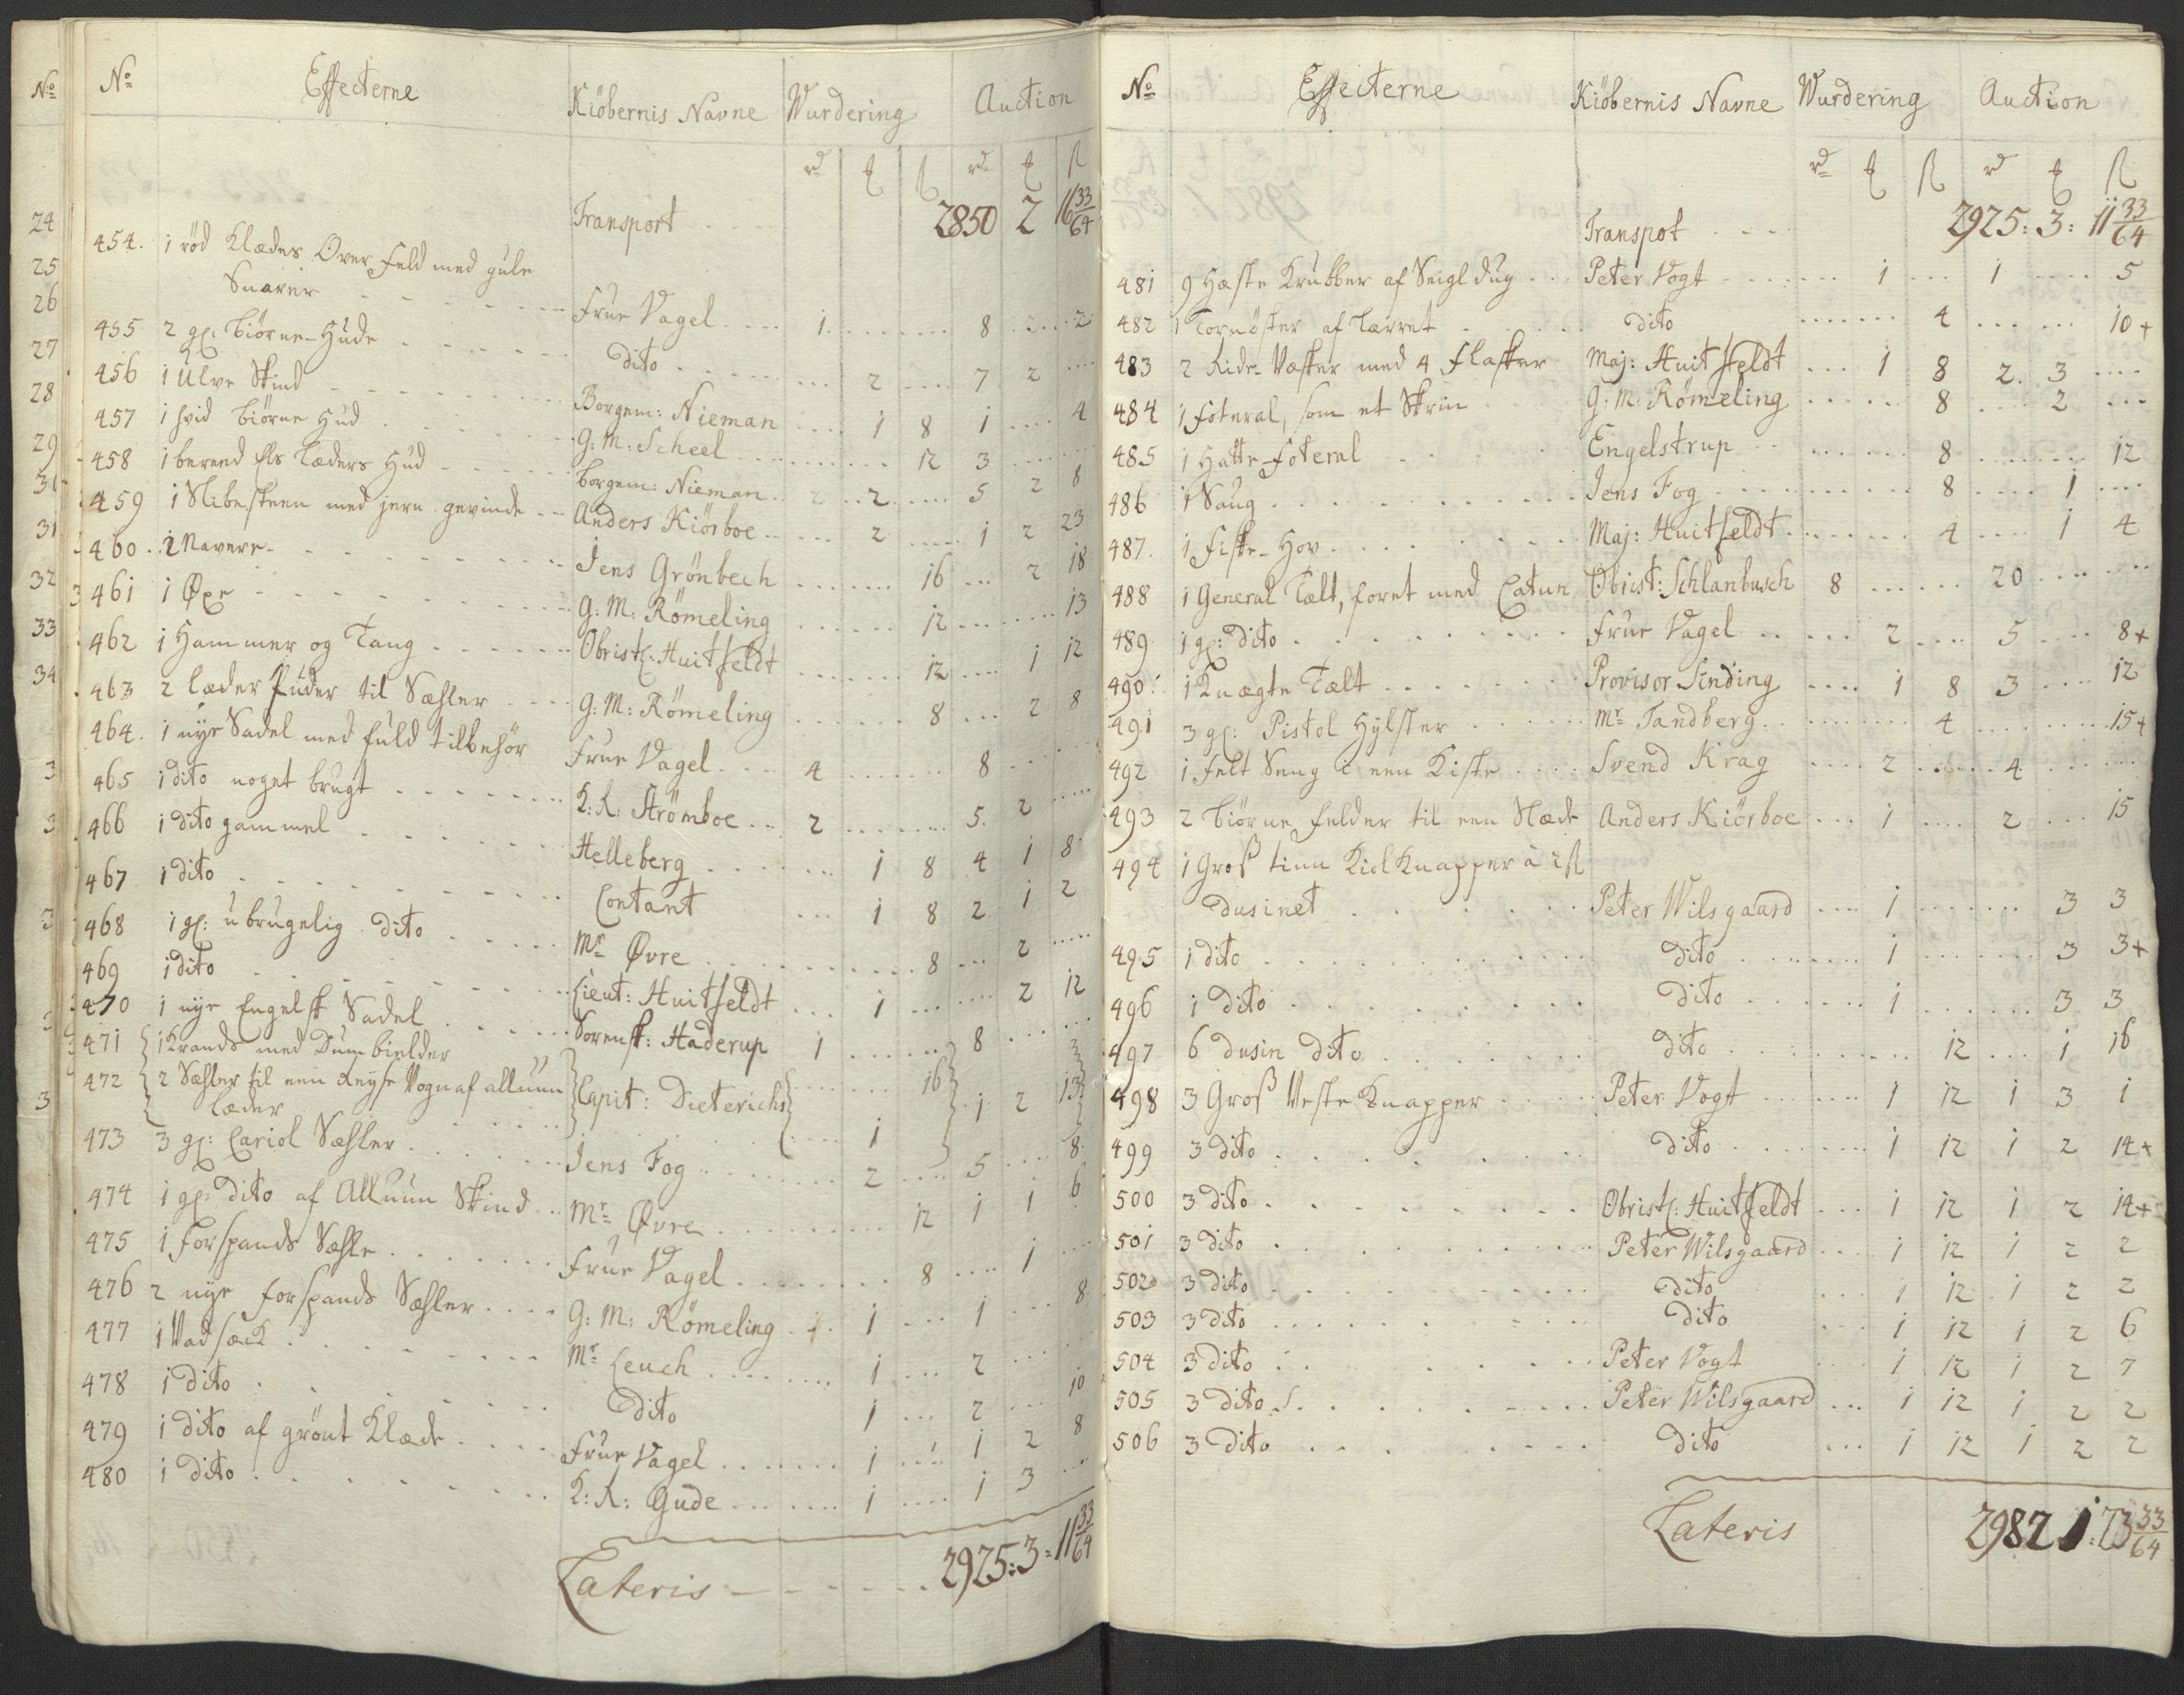 No Effecterne Kiöbernis Navne Wurdering Auction
rd ₰ ß rd ₰ ß
Transport 2850 2 16 33/64
454. 1 rød Klædes Over Feld med gule
Snorer Frue Vagel 1 8 2
455 2 gl: Biörne-Hude dito 2 7 2
456 1 Ulve Skind Borgem: Nieman 1 8 1 4
457 1 hvid Biörne Hud G: M: Scheel 12 3
458 1 Læders Hud Borgem: Nieman 2 5 2 8
459 1 Slibesteen med jern gevinde Anders Kiörboe 2 1 2 23
460 2 Navere Jens Grönbech 16 2 18
461 1 Øxe G: M: Römeling 12 13
462 1 Hammer og Tang Obristl: Huitfeldt 12 1 12
463 2 læder Puder til Sæhler G: M: Römeling 8 2 8
464. 1 nye Sadel med fuld tilbehör Frue Vagel 4 8
465 1 dito noget brugt K: R: Strömboe 2 5. 2
466 1 dito gammel Helleberg 1 8 4 1 8
467 1 dito Contant 1 8 2 1 2
468 1 gl: ubrugelig dito Mr Øvre 8 2
469 1 dito Lieut: Huitfeldt 1 2 12
470 1 nye Engelsk Sadel Sorensk: Haderup 1 8
471 1 Krands med Dumbielder 16
472 2 Sæhler til een Reyse Vogn af alluun
læder Capit: Dieterichs 1 1 2 13
473 3 gl: Cariol Sæhler Jens Fog 2 5 8
474 1 gl: dito af Alluun Skind Mr Øvre 12 1 1 6
475 1 Forspands Sæhle Frue Vagel 8 1
476 2 nye Forspands Sæhler G: M: Römeling 1 1 8
477 1 Vadsæck Mr Leuch 1 2
478 1 dito dito 1 2 10
479 1 dito af grönt Klæde Frue Vagel 1 1 2 8
480 1 dito K: R: Gude 1 1 3
Lateris 2925: 3: 11 33/64
No Effecterne Kiöbernis Navne Wurdering Auction
rd ₰ ß rd ₰ ß
Transpot 2925: 3: 11 33/64
481 9 Hæste Krubber af Seigl dug Peter Vogt 1 1 5
482 1 Tornöster af Lærret dito 4 10+
483 2 Ride-Væsker med 4 Flasker Maj: Huitfeldt 1 8 2. 3
484 1 Foteral, som et Skrin G. M. Römeling 8 2
485 1 Hatte-Foteral Engelstrup 8 12
486 1 Saug Jens Fog 8 1
487. 1 Fiske-Hov Maj: Huitfeldt 4 1 4
488 1 General Tælt, foret med Catun Obrist: Schlanbusch 8 20
489 1 gl: dito Frue Vagel 2 5 8+
490: 1 Knægte Tælt Provisor Sinding 1 8 3 12
491 3 gl: Pistol Hylster Mr Tandberg 4 15+
492 1 Felt Seng i een Kiste Svend Krag 2 4
493 2 Biörne Felder til een Slæde Anders Kiörboe 1 2 15
494 1 Groß tinn Kiol Knapper à 2ß
dusinet Peter Wilsgaard 1 3 3
495 1 dito dito 1 3 3+
496 1 dito dito 1 3 3
497 6 dusin dito dito 12 1 16
498 3 Groß Veste Knapper Peter Vogt 1 12 1 3 1
499 3 dito dito 1 12 1 2 14+
500 3 dito Obristl: Huitfeldt 1 12 1 2 14+
501 3 dito Peter Wilsgaard 1 12 1 2 2
502 3 dito dito 1 12 1 2 2
503 3 dito dito 1 12 1 2 6
504 3 dito Peter Vogt 1 12 1 2 7
505 3 dito Peter Wilsgaard 1 12 1 2 2
506 3 dito dito 1 12 1 2 2
Lateris 2982 1: 23 33/64